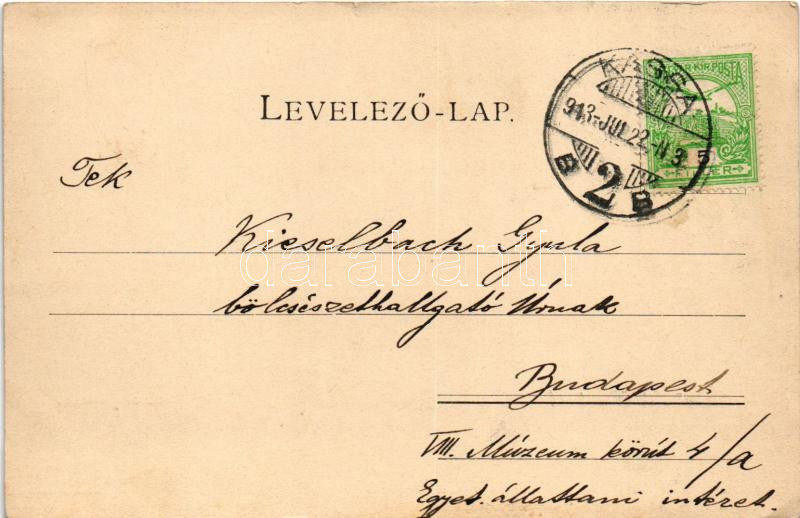 MAGY. KIR. POSTA
KASSA
913-JUL.22-N3
B 2 B
5
FILLÉR
LEVELEZŐ-LAP.
Tek
Kieselbach Gyula
darabanth
bölcsészethallgató Úrnak
Budapest
VIII. Múzeum körút 4/a
Egyet. állattani intézet.